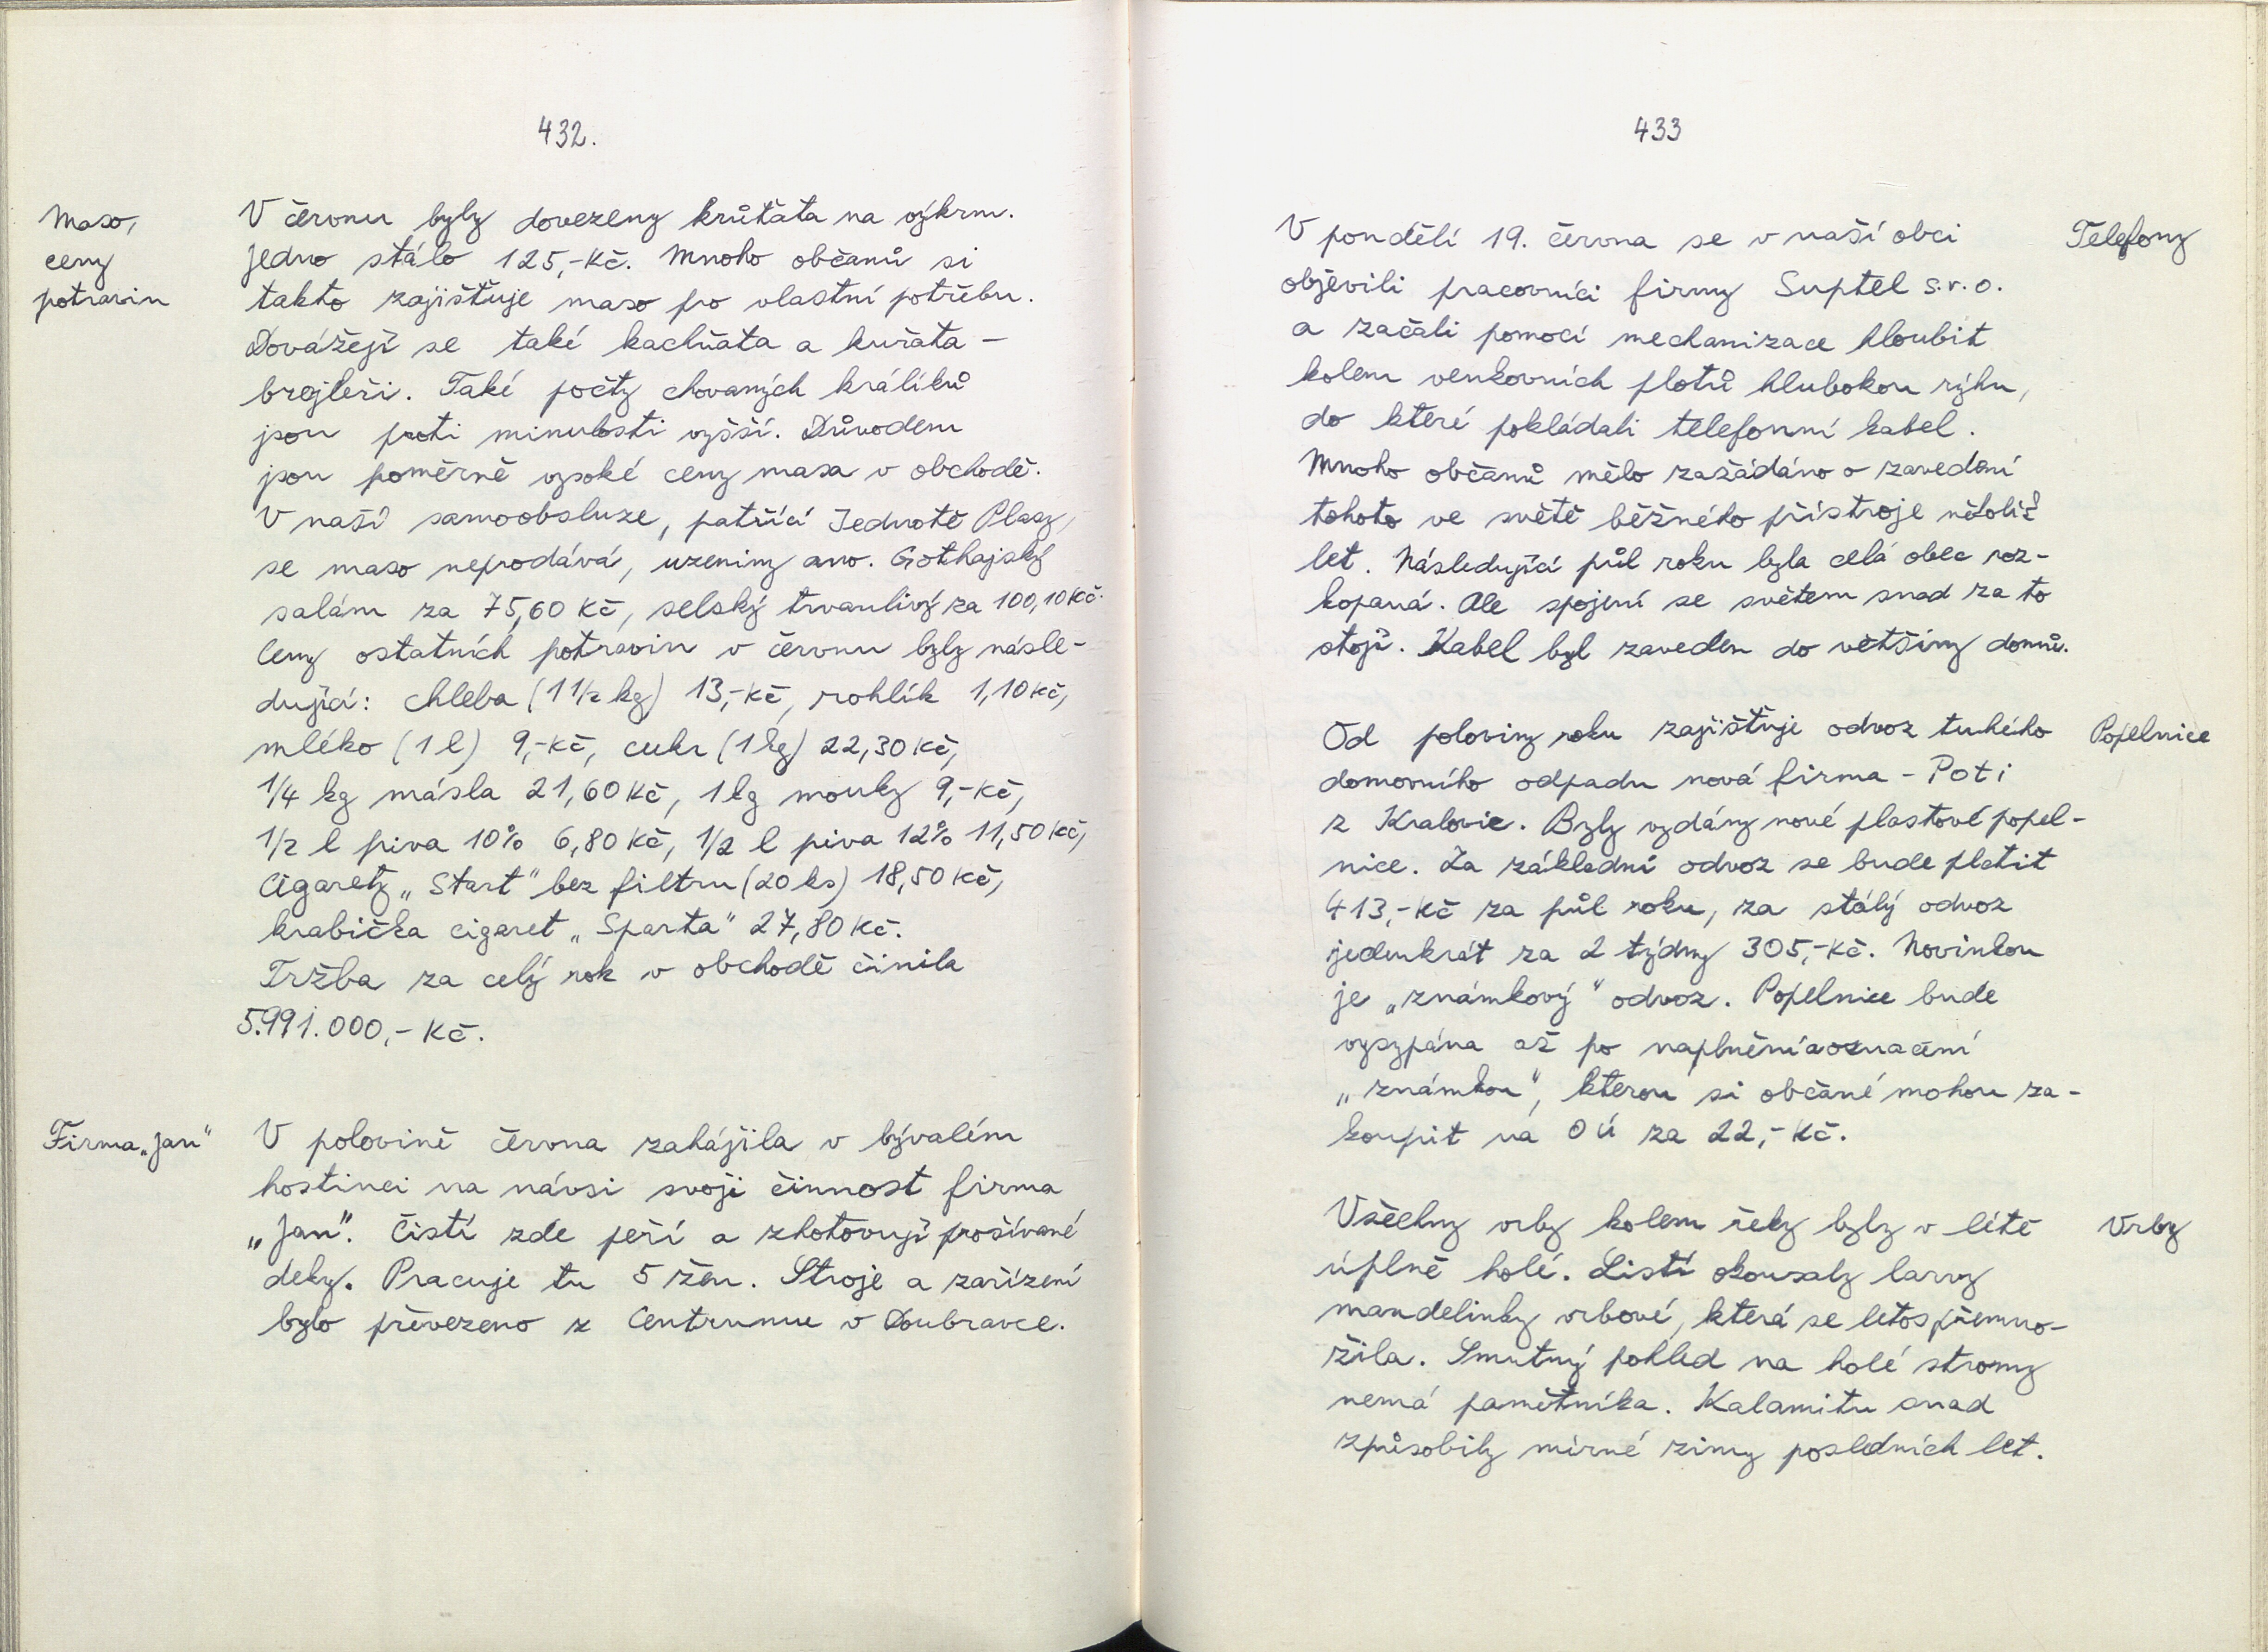 432.
Maso,
ceny
potravin
V červnu byly dovezeny krůťata na výkrm.
Jedno stálo 125,-Kč. Mnoho občanů si
takto zajišťuje maso pro vlastní potřebu.
Dovážejí se také kachňata a kuřata –
brojleři. Také počty chovaných králíků
jsou proti minulosti vyšší. Důvodem
jsou poměrně vysoké ceny masa v obchodě.
V naší samoobsluze, patřící Jednotě Plasy,
se maso neprodává, uzeniny ano. Gothajský
salám za 75,60 Kč, selský trvanlivý za 100,10 Kč.
Ceny ostatních potravin v červnu byly násle-
dující: chleba (1 1/2 kg) 13,-Kč, rohlík 1,10 Kč,
mléko (1 l) 9,-Kč, cukr (1 kg) 22,30 Kč,
1/4 kg másla 21,60 Kč, 1 kg mouky 9,-Kč,
1/2 l piva 10% 6,80 Kč, 1/2 l piva 12% 11,50 Kč,
Cigarety „Start" bez filtru (20 ks) 18,50 Kč,
krabička cigaret „Sparta" 27,80 Kč.
Tržba za celý rok v obchodě činila
5.991.000,- Kč.
Firma „Jan"
V polovině června zahájila v bývalém
hostinci na návsi svoji činnost firma
„Jan". Čistí zde peří a zhotovují prošívané
deky. Pracuje tu 5 žen. Stroje a zařízení
bylo převezeno z Centrumu v Doubravce.
433
Telefony
V pondělí 19. června se v naší obci
objevili pracovníci firmy Suptel s.r.o.
a začali pomocí mechanizace hloubit
kolem venkovních plotů hlubokou rýhu,
do které pokládali telefonní kabel.
Mnoho občanů mělo zažádáno o zavedení
tohoto ve světě běžného přístroje několik
let. Následující půl roku byla celá obec roz-
kopaná. Ale spojení se světem snad za to
stojí. Kabel byl zaveden do většiny domů.
Popelnice
Od poloviny roku zajišťuje odvoz tuhého
domovního odpadu nová firma – Poti
z Kralovic. Byly vydány nové plastové popel-
nice. Za základní odvoz se bude platit
413,-Kč za půl roku, za stálý odvoz
jedenkrát za 2 týdny 305,-Kč. Novinkou
je „známkový" odvoz. Popelnice bude
vysypána až po naplnění a označení
„známkou", kterou si občané mohou za-
koupit na OÚ za 22,-Kč.
Vrby
Všechny vrby kolem řeky byly v létě
úplně holé. Listí okousaly larvy
mandelinky vrbové, která se letos přemno-
žila. Smutný pohled na holé stromy
nemá pamětníka. Kalamitu snad
způsobily mírné zimy posledních let.